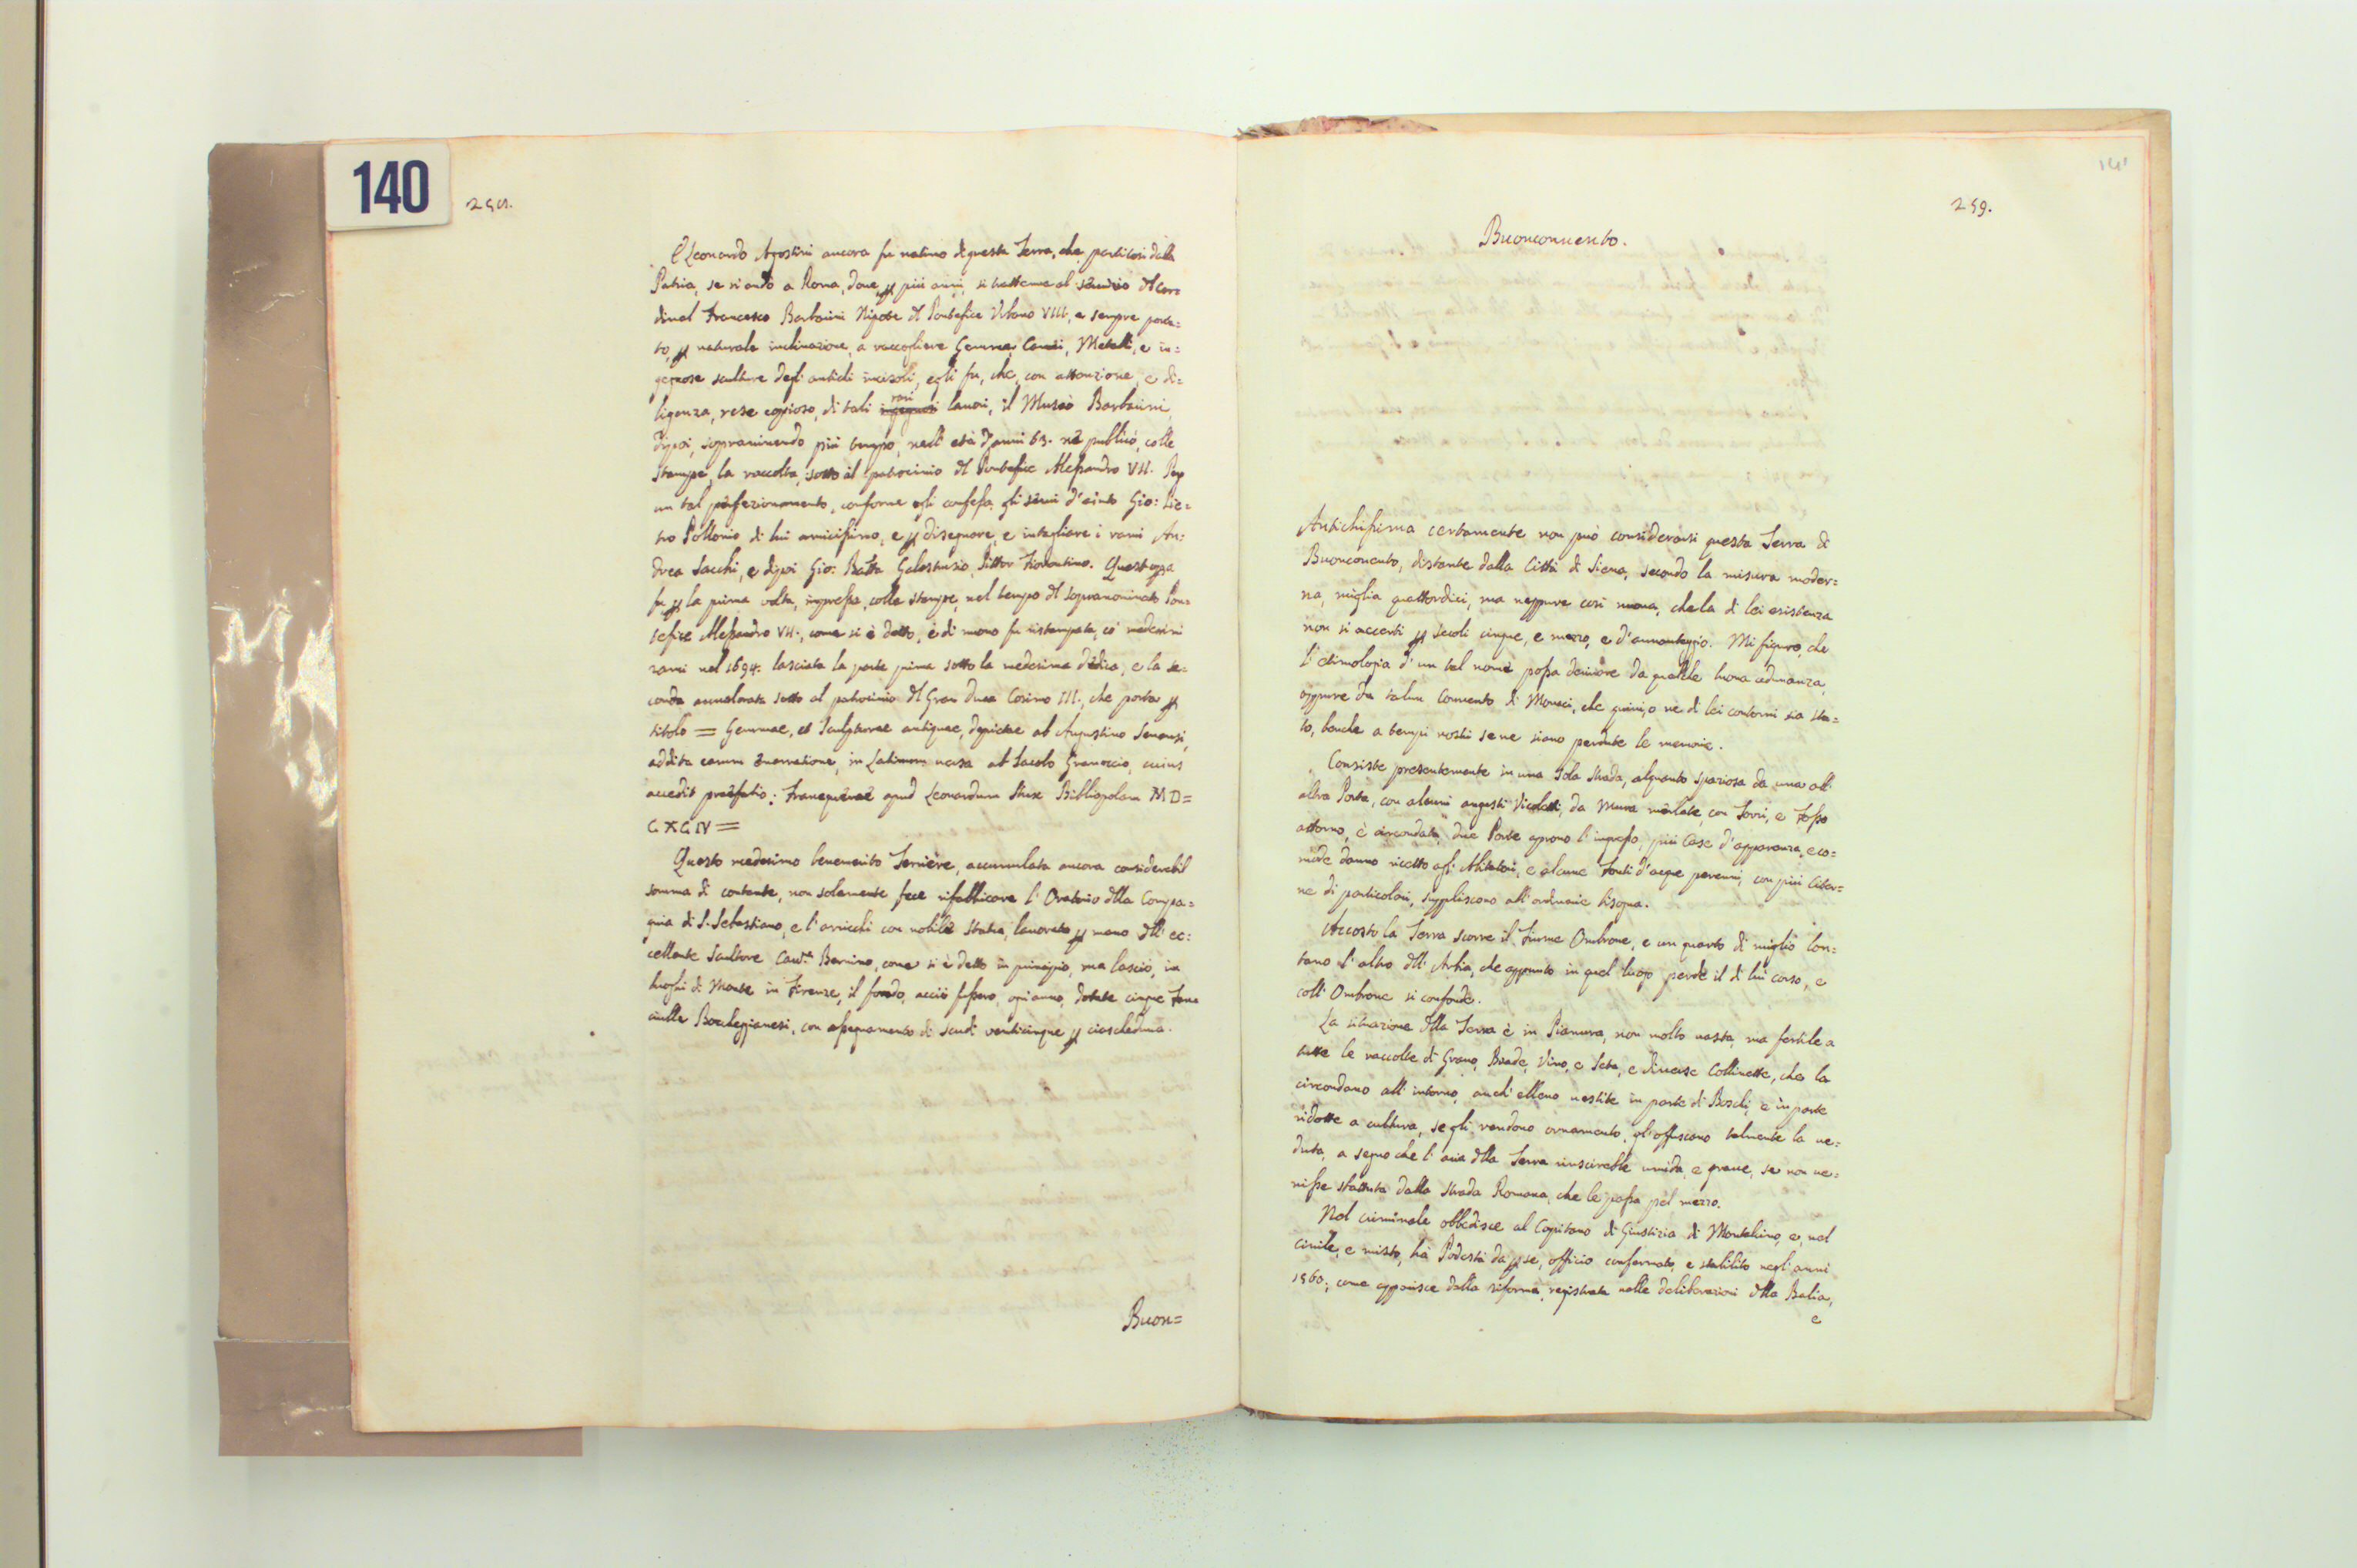 140
258.
E Leonardo Agostini ancora fu nativo di questa Terra, che partitosi dalla
Patria, se ni andò a Roma, dove, per più anni, si trattenne al servizio del Car=
dinal Francesco Barberini Nipote del Pontefice Urbano VIII, e sempre porta=
to, per naturale inclinazione, a raccogliere Gemme, Camei, Metalli, e in=
gegnose sculture degli antichi incisoli, egli fu, che, con attenzione, e di=
ligenza, rese copioso, di tali rari lavori, il Museo Barberini,
dipoi, sopravivendo più tempo, nell' età d'anni 63. ne publicò, colle
stampe, la raccolta, sotto il patrocinio del Pontefice Alessandro VII. Per
un tal perfezionamento, conforme egli confessa, gli servì d'aiuto Gio: Pie=
tro Pollonio di lui amicissimo, e per disegnare, e intagliare i rami An=
drea Sacchi, e dipoi Gio: Batta Galestrusio, Pittor Fiorentino. Quest'opera
fu per la prima volta, impressa, colle stampe, nel tempo del sopranominato Pon=
tefice Alessandro VII., come si è detto, e di nuovo fu ristampata, co' medesimi
rami nel 1694. lasciata la parte prima sotto la medesima dedica, e la se=
conda avvalorata sotto al patrocinio del Gran Duca Cosimo III., che porta per
titolo = Gemmae, et Sculpturae antiquae, depictae ab Augustino Senensi,
addita earum enarratione, in Latinum versa ab Iacobo Gronovio, cuius
accedit praefatio: Franequerae apud Leonardum Strix Bibliopolam MD=
CXCIV =
Questo medesimo benemerito Terriere, accumulata ancora considerabil
somma di contante, non solamente fece rifabbricare l' Oratorio della Compa=
gnia di S. Sebastiano, e l' arricchì con nobile statua, lavorata per mano dell' ec=
cellente Scultore Cav.re Bernino, come si è detto in principio, ma lasciò, in
luoghi di Monte in Firenze, il fondo, acciò fossero, ogni anno, dotate cinque Fan=
ciulle Boccheggianesi, con assegnamento di scudi venticinque per ciascheduna.
Buon=
141
259.
Buonconvento.
Antichissima certamente non può considerarsi questa Terra di
Buonconvento, distante dalla Città di Siena, secondo la misura moder=
na, miglia quattordici, ma neppure così nuova, che la di lei esistenza
non si accerti per secoli cinque, e mezzo, e d'avvantaggio. Mi figuro, che
l' etimologia d' un tal nome possa derivare da qualche buona adunanza,
oppure da talun Convento di Monaci, che quivi, o ne di lei contorni sia sta=
to, benche a tempi nostri se ne siano perdute le memorie.
Consiste presentemente in una sola strada, alquanto spaziosa da una all'
altra Porta, con alcuni angusti Vicoletti, da Mura merlate, con Torri, e Fosso
attorno, è circondata, due Porte aprono l' ingresso, più Case d'apparenza, e co=
mode danno ricetto agli Abitatori, e alcune Fonti d'acque perenni, con più Citer=
ne di particolari, suppliscono all' ordinarie bisogna.
Accosto la Terra scorre il Fiume Ombrone, e un quarto di miglio lon=
tano l' altro dell' Arbia, che appunto in quel luogo perde il di lui corso, e
coll' Ombrone si confonde.
La situazione della Terra è in Pianura, non molto vasta, ma fertile a
tutte le raccolte di Grano, Biade, Vino, e Seta, e diverse Collinette, che la
circondano all' intorno, anch' elleno vestite in parte di Boschi, e in parte
ridotte a cultura, se gli rendono ornamento, gl' offuscano talmente la ve=
duta, a segno che l' aria della Terra riuscirebbe umida, e grave, se non ve=
nisse sbattuta dalla strada Romana, che le passa pel mezzo.
Nel criminale obbedisce al Capitano di Giustizia di Montalcino, e, nel
civile, e misto, ha Podestà da per se, officio confermato, e stabilito negl' anni
1560., come apparisce dalla riforma, registrata nelle deliberazioni della Balia,
e